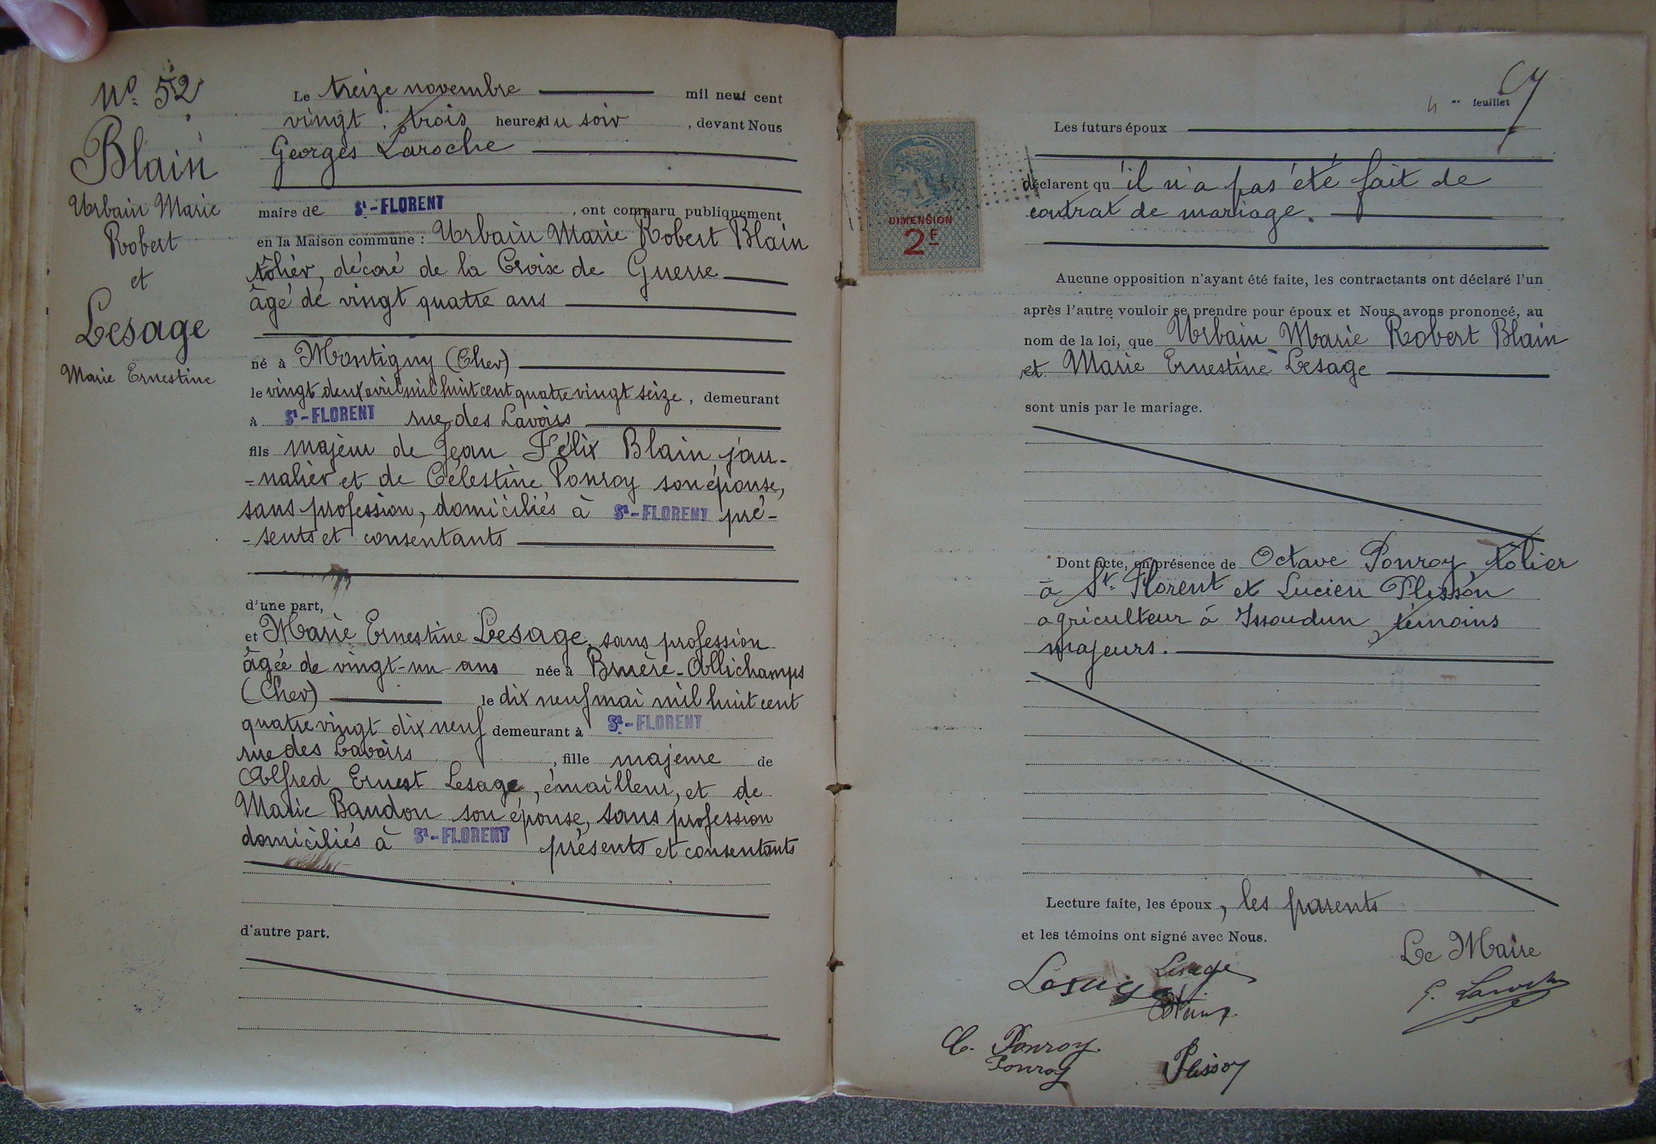 N° 52
Blain
Urbain Marie
Robert
et
Lesage
Marie Ernestine
Le treize novembre mil neuf cent
vingt, trois heures du soir, devant Nous
Georges Laroche
maire de St-FLORENT, ont comparu publiquement
en la Maison commune : Urbain Marie Robert Blain
tôlier, décoré de la Croix de Guerre
âgé de vingt quatre ans
né à Montigny (Cher)
le vingt deux avril mil huit cent quatre vingt seize, demeurant
à St-FLORENT rue des Lavoirs
fils majeur de Jean Félix Blain jour-
-nalier et de Célestine Ponroy son épouse,
sans profession, domiciliés à St-FLORENT pré-
-sents et consentants
d'une part,
et Marie Ernestine Lesage, sans profession
âgée de vingt-un ans née à Bruère-Allichamps
(Cher) le dix neuf mai mil huit cent
quatre vingt dix neuf demeurant à St-FLORENT
rue des Lavoirs, fille majeure de
Alfred Ernest Lesage, émailleur, et de
Marie Baudon son épouse, sans profession
domiciliés à St-FLORENT présents et consentants
d'autre part.
feuillet
Les futurs époux
déclarent qu'il n'a pas été fait de
contrat de mariage.
DIMENSION
2F
Aucune opposition n'ayant été faite, les contractants ont déclaré l'un
après l'autre vouloir se prendre pour époux et Nous avons prononcé, au
nom de la loi, que Urbain Marie Robert Blain
et Marie Ernestine Lesage
sont unis par le mariage.
Dont acte, en présence de Octave Ponroy, tôlier
à St Florent et Lucien Plisson
agriculteur à Issoudun témoins
majeurs.
Lecture faite, les époux, les parents
et les témoins ont signé avec Nous.
Le Maire
Lesage
Lesage
G. Laroche
Blain
C. Ponroy
Ponroy
Plisson